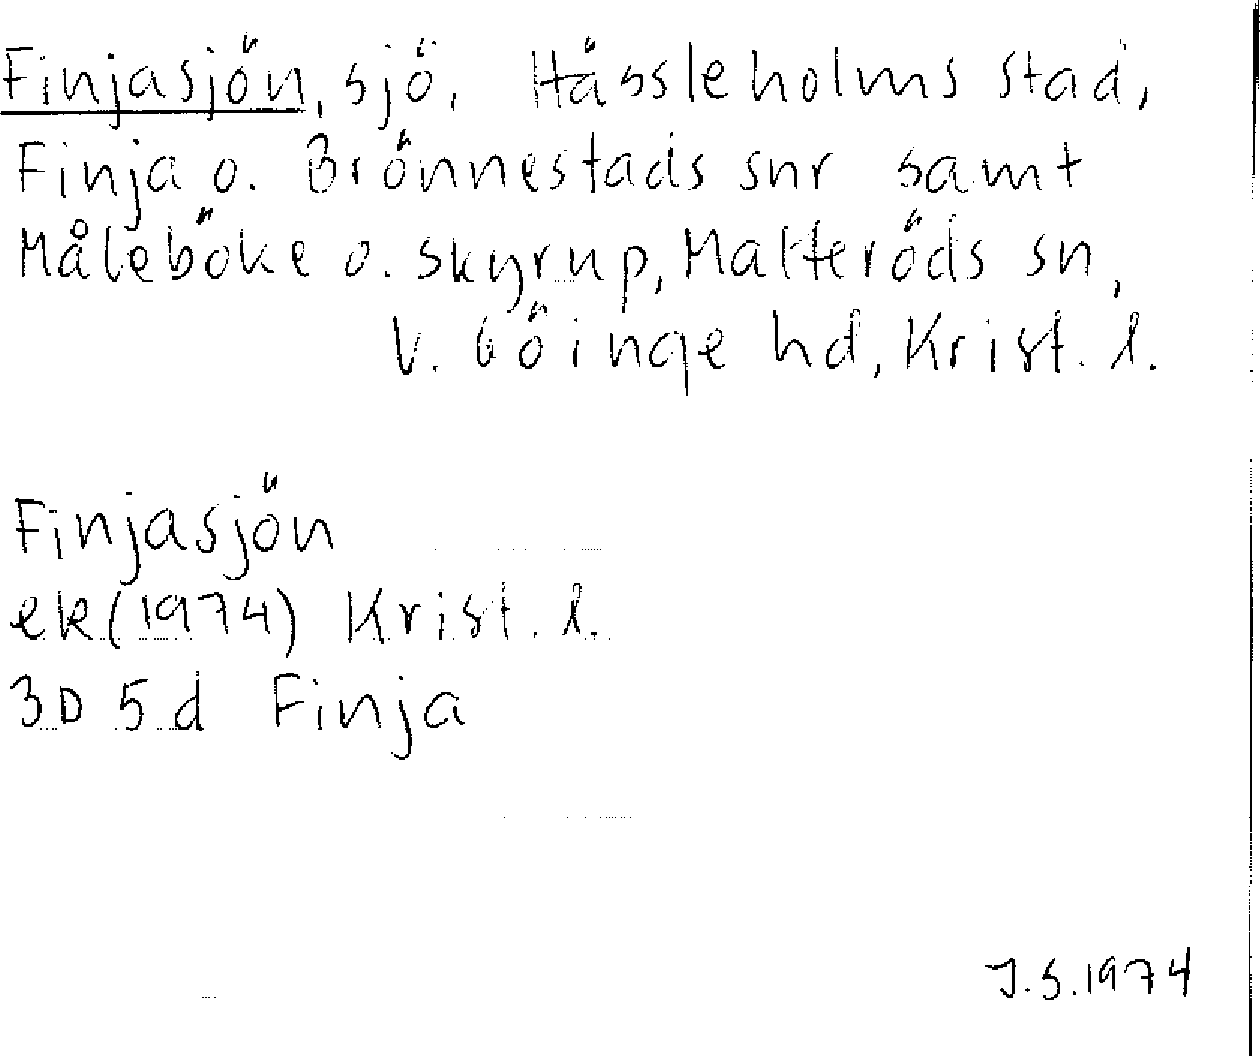 Finjasjön, sjö, Hässleholms stad,
Finja o. Brönnestads snr samt
Måleböke o. Skyrup, Matteröds sn,
V. Göinge hd, Krist. l.
Finjasjön
ek (1974) Krist. l.
3D 5d Finja
J.S. 1974